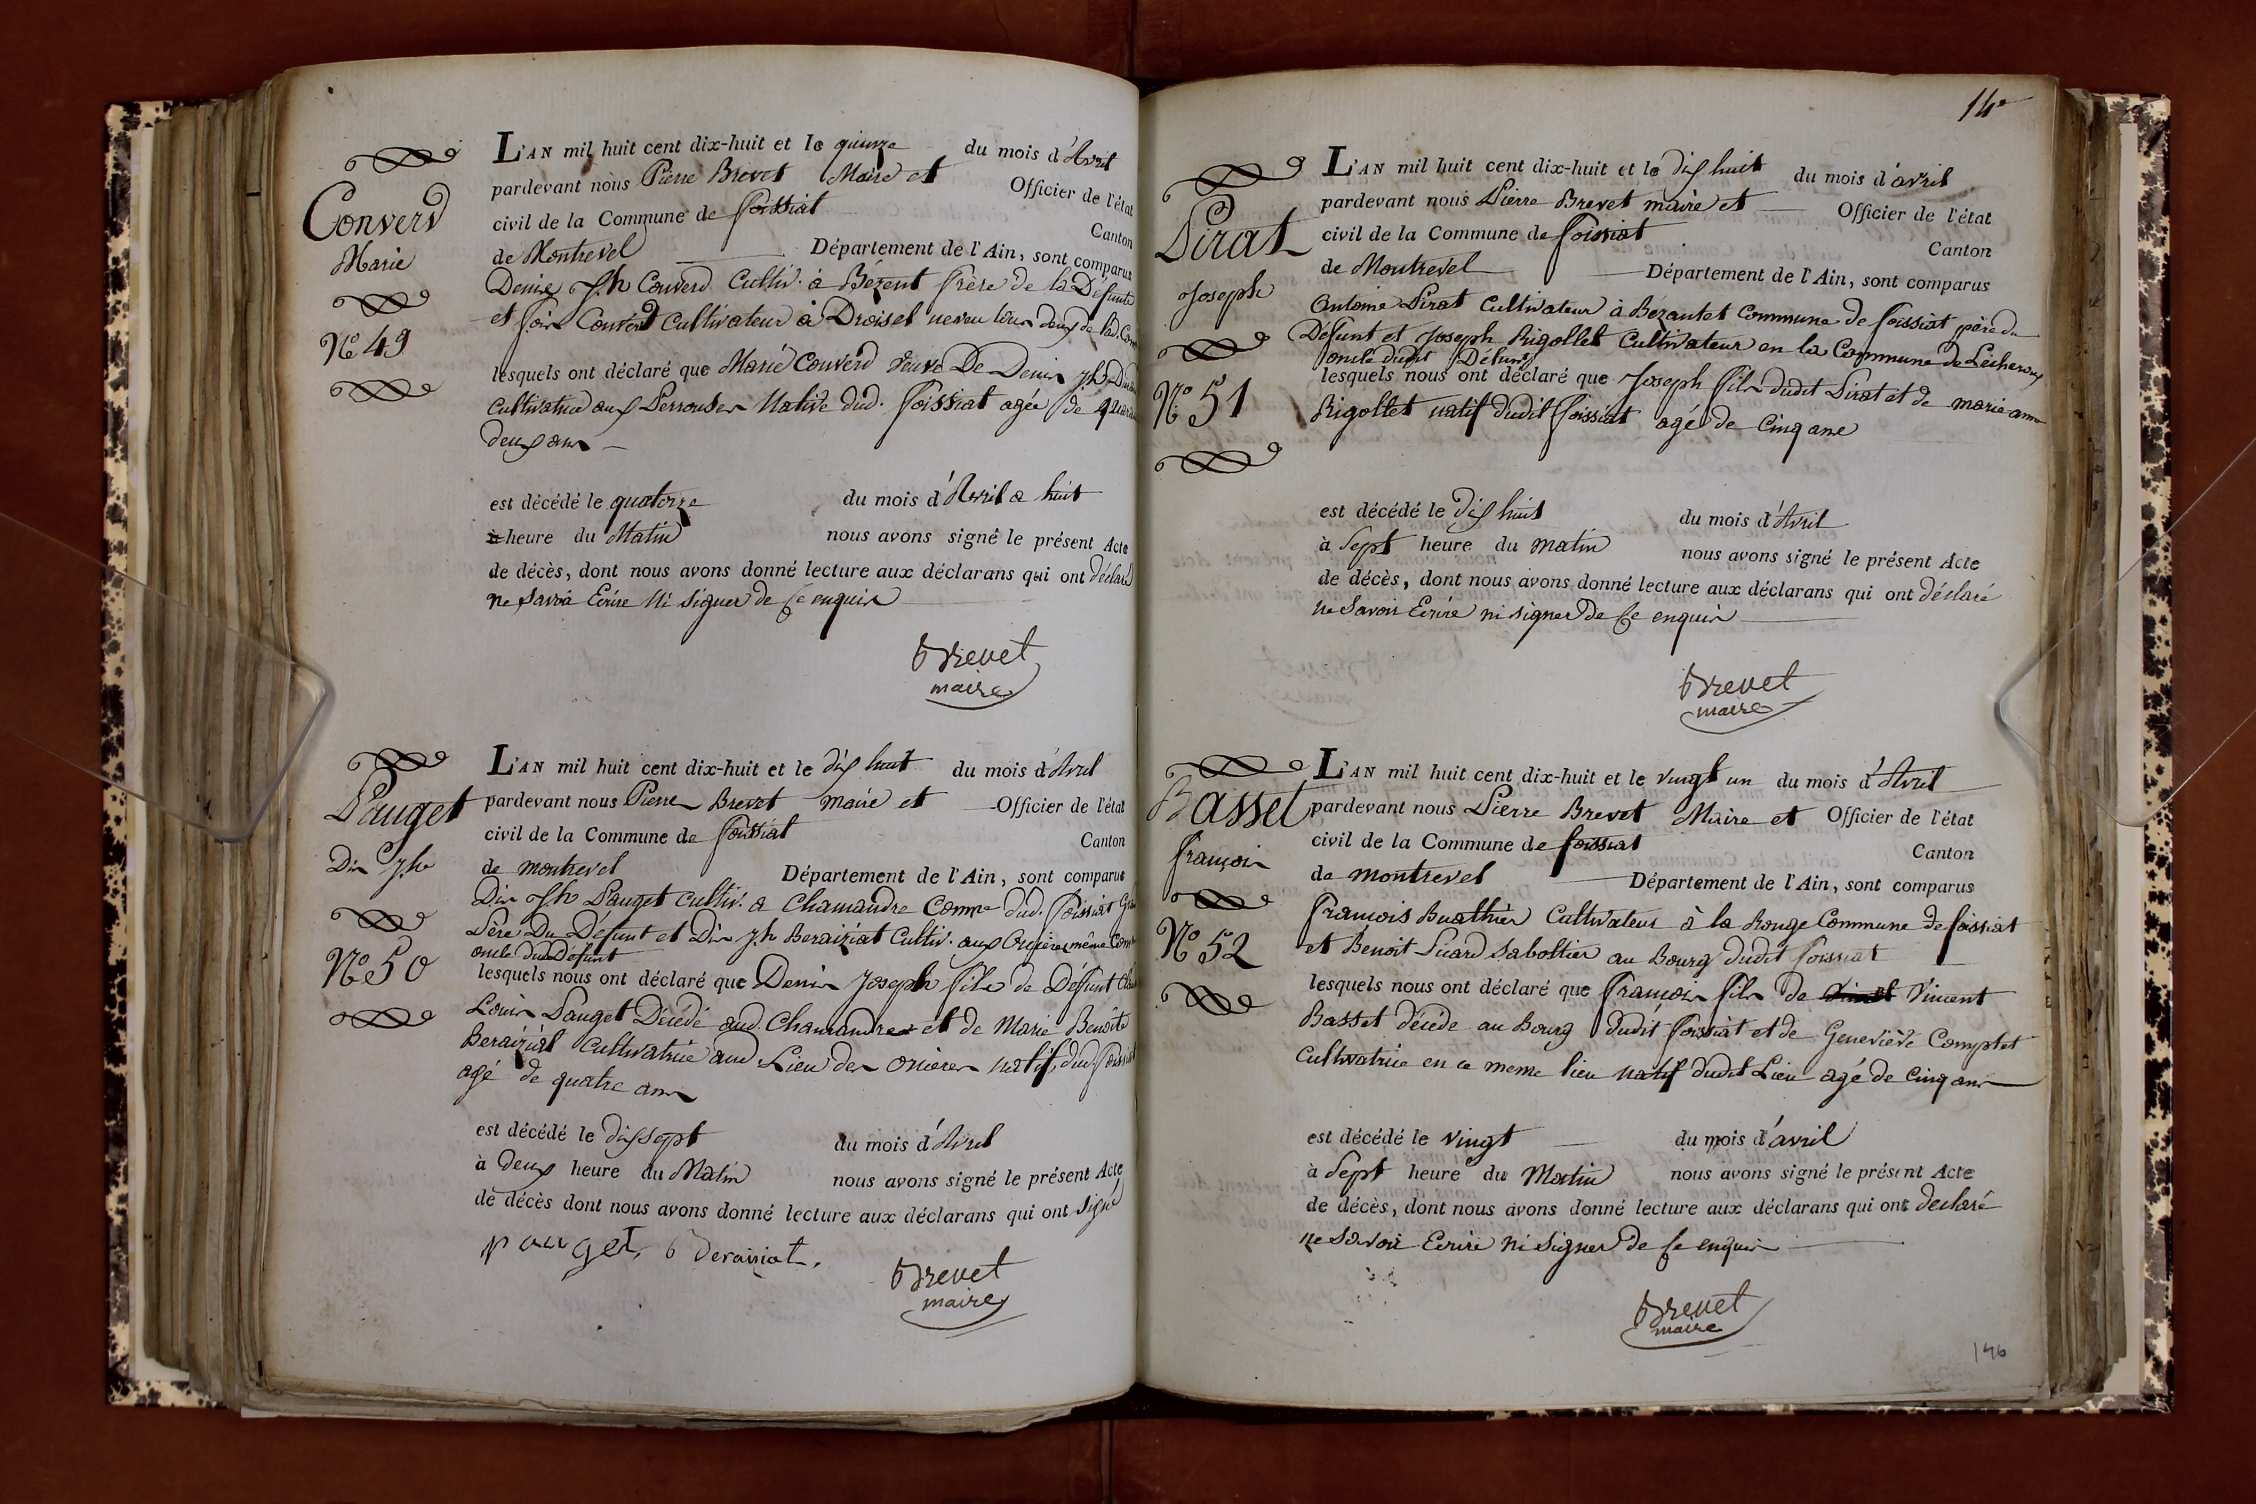 Converd
Marie
No 49
L'AN mil huit cent dix-huit et le quinze du mois d'Avril
pardevant nous Pierre Brevet Maire et Officier de l'état
civil de la Commune de foissiat Canton
de Montrevel Département de l'Ain, sont comparus
Denis Jh Converd Cultiv. à Bézent frère de la Défunte
et Converd Cultivateur à Droisel neveu tous deux de lad. Com
lesquels ont déclaré que Marie Converd veuve De Denis Jh
cultivatrice aux Perrouses Native dud. foissiat agée de quara
deux ans
est décédé le quatorze du mois d'Avril a huit
à heure du Matin nous avons signé le présent Acte
de décès, dont nous avons donné lecture aux déclarans qui ont déclaré
ne savoir Ecrire Ni signer de ce enquis
Brevet
maire
Pauget
Dis Jh
No 50
L'AN mil huit cent dix-huit et le dix huit du mois d'Avril
pardevant nous Pierre Brevet maire et Officier de l'état
civil de la Commune de foissiat Canton
de montrevel Département de l'Ain, sont comparus
Dis Jh Pauget cultiv. a Chamandre Comne dud. foissiat
Père Du Défunt et Dis Jh Beraiziat Cultiv. aux Orcières même Com
oncle dud Défunt
lesquels nous ont déclaré que Denis Joseph fils de Défunt
Louis Pauget Décédé aud Chamandre et de Marie Benoîte
Beraiziat Cultivatrice aud Lieu des natif dud foissiat
agé de quatre ans
est décédé le dix sept du mois d'Avril
à deux heure du Matin nous avons signé le présent Acte
de décès dont nous avons donné lecture aux déclarans qui ont signé
pauget, beraisiat.
Brevet
maire
14e
Pirat
Joseph
No 51
L'AN mil huit cent dix-huit et le dix huit du mois d'avril
pardevant nous Pierre Brevet maire et Officier de l'état
civil de la Commune de foissiat Canton
de Montrevel Département de l'Ain, sont comparus
Antoine Pirat Cultivateur à Bézantet Commune de foissiat père du
Défunt et Joseph Rigollet Cultivateur en la Commune de Lécheroux
oncle dudit Défunt
lesquels nous ont déclaré que Joseph fils dudit Pirat et de marie anne
Rigollet natif dudit foissiat agé de Cinq ans
est décédé le dix huit du mois d'Avril
à Sept heure du matin nous avons signé le présent Acte
de décès, dont nous avons donné lecture aux déclarans qui ont déclaré
ne Savoir Ecrire ni signer de ce enquis
Brevet
maire
Basset
françois
No 52
L'AN mil huit cent dix-huit et le vingt un du mois d'Avril
pardevant nous Pierre Brevet Maire et Officier de l'état
civil de la Commune de foissiat Canton
de montrevel Département de l'Ain, sont comparus
françois Buathier Cultivateur à la Rouge Commune de foissiat
et Benoit Picard Sabottier au Bourg dudit foissiat
lesquels nous ont déclaré que françois fils de Vincent
Basset décédé au Bourg dudit foissiat et de Geneviève Comptet
Cultivatrice en ce meme lieu natif dudit Lieu agé de Cinq ans
est décédé le vingt du mois d'avril
à Sept heure du Matin nous avons signé le présent Acte
de décès, dont nous avons donné lecture aux déclarans qui ont declaré
ne Savoir Ecrire Ni Signer de ce enquis
Brevet
maire
146